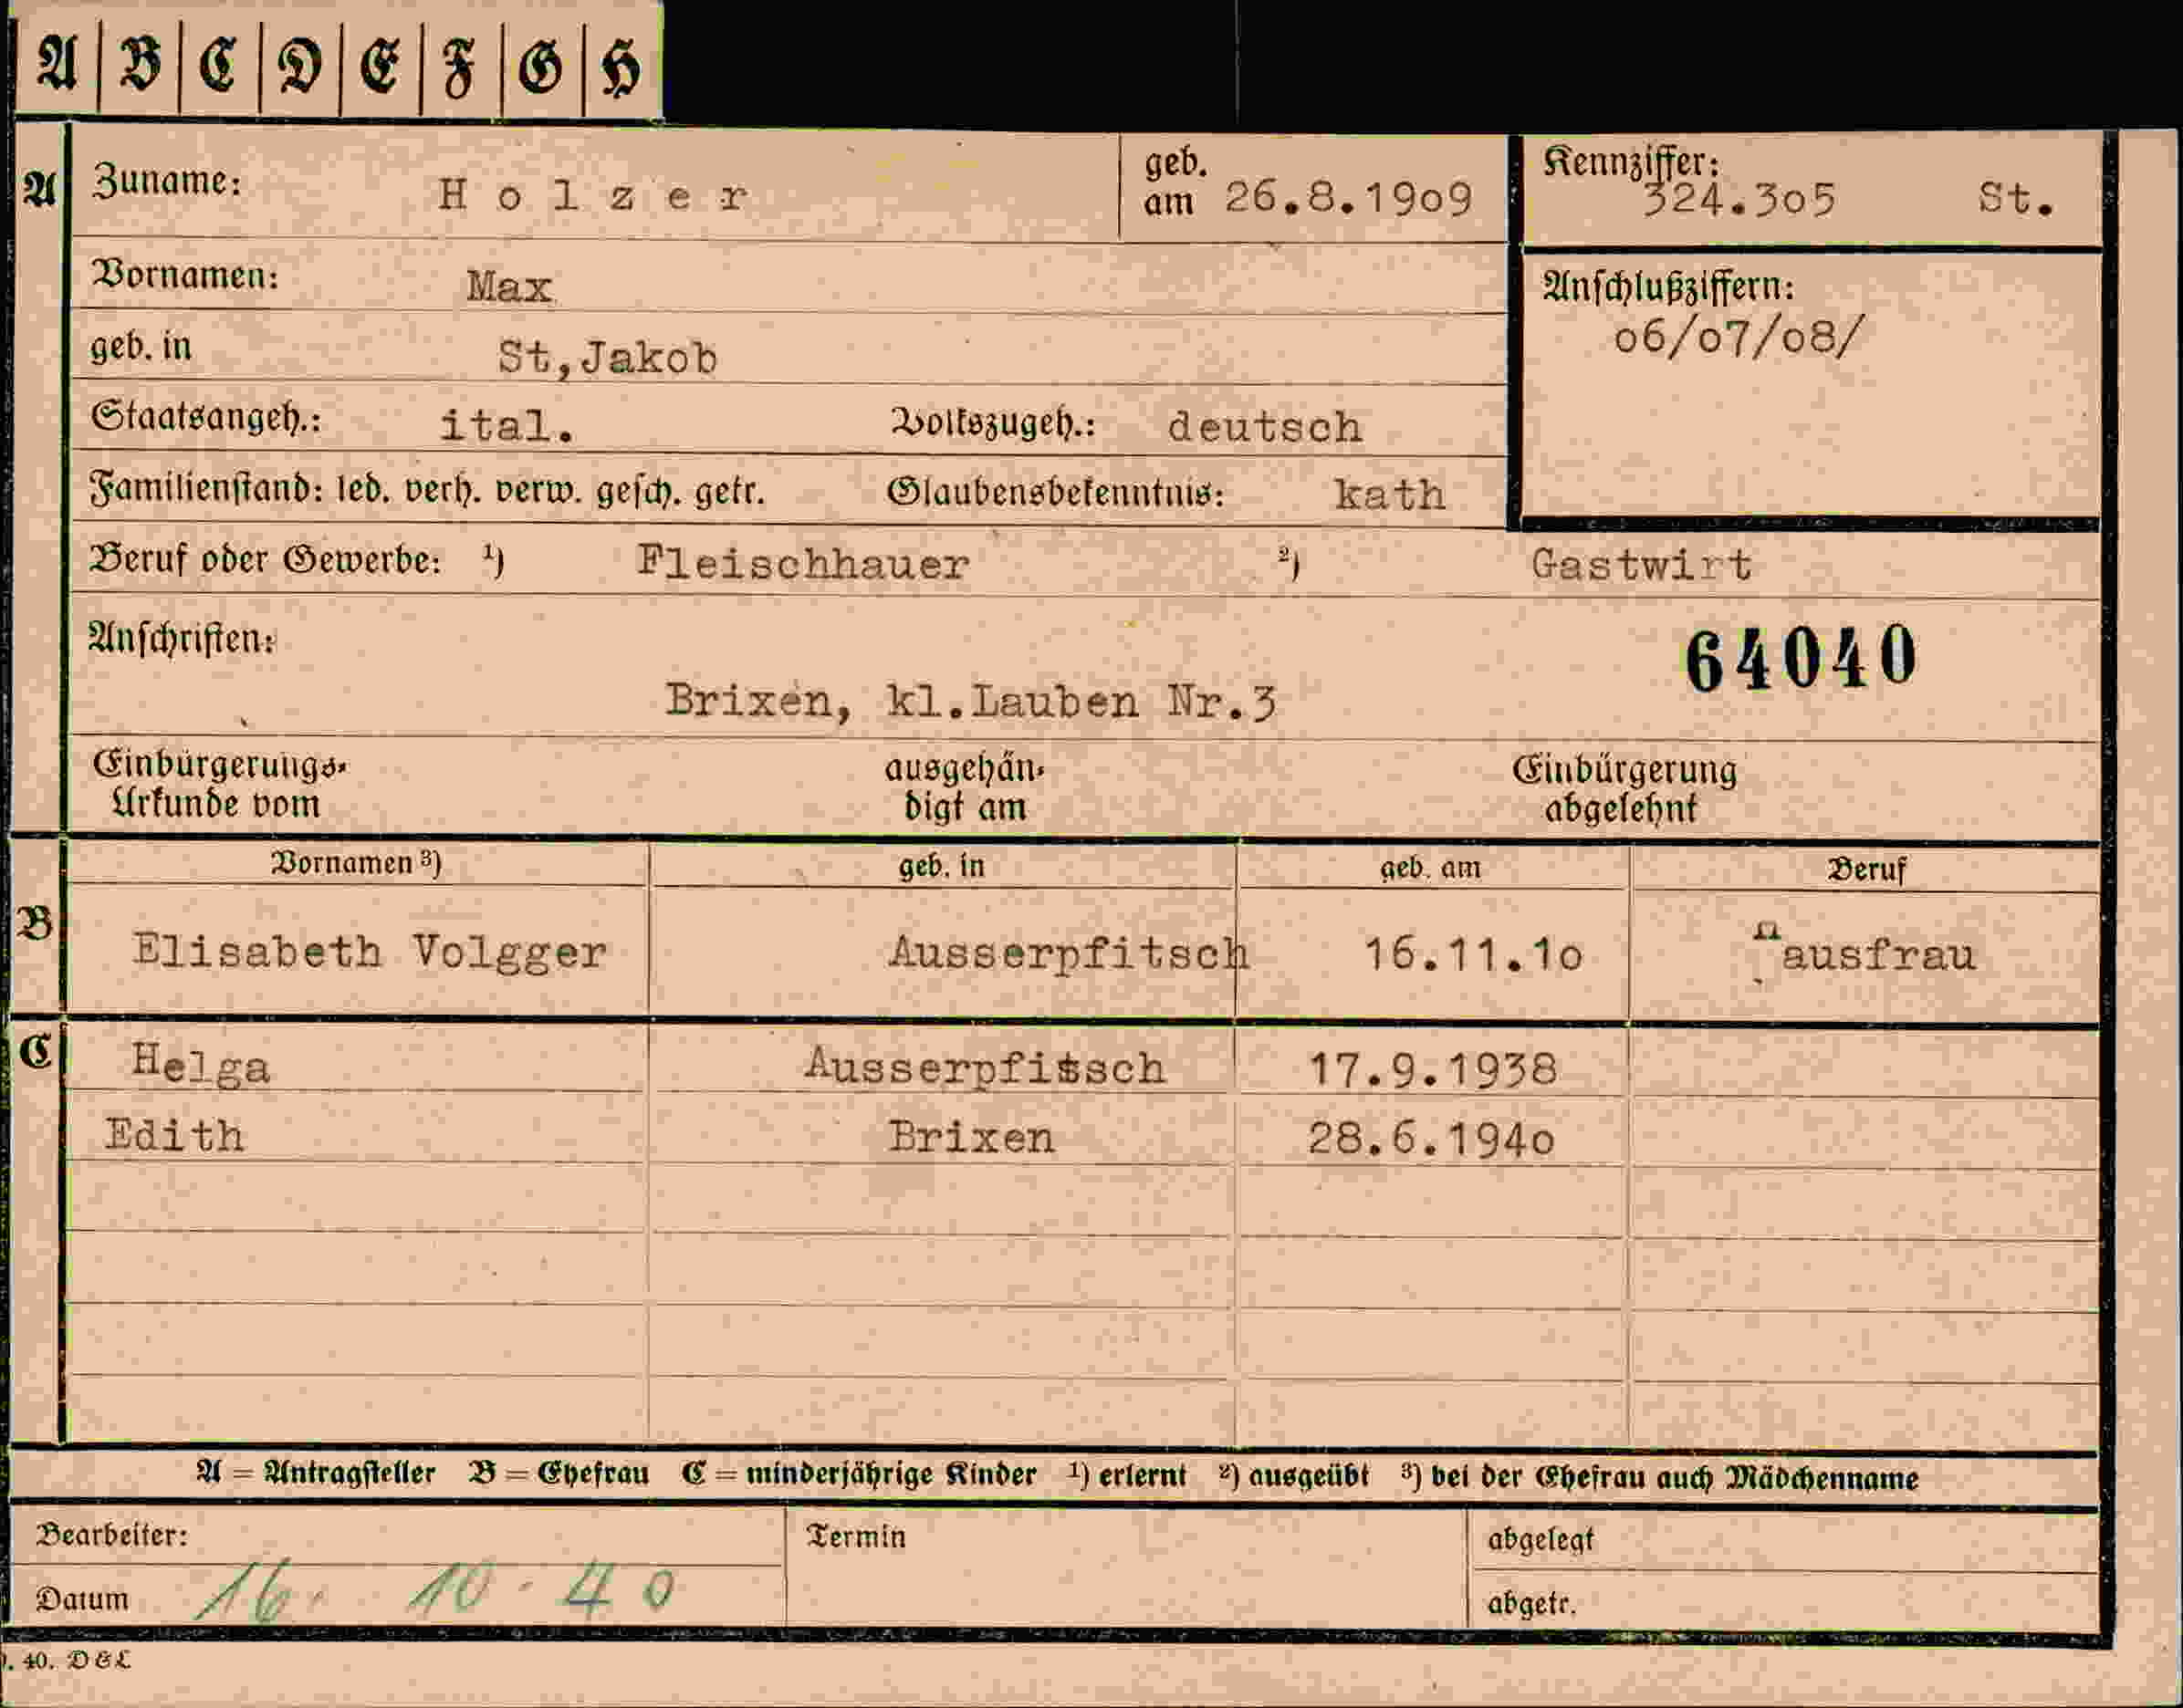 A B C D E F G H
A Zuname: Holzer geb. am 26.8.19o9 Kennziffer: 324.3o5 St.
Vornamen: Max Anschlußziffern:
geb. in St,Jakob o6/o7/o8/
Staatsangeh.: ital. Volkszugeh.: deutsch
Familienstand: led. verh. verw. gesch. getr. Glaubensbekenntnis: kath
Beruf oder Gewerbe: ¹) Fleischhauer ²) Gastwirt
Anschriften: 64040
Brixen, kl.Lauben Nr.3
Einbürgerungs- ausgehän- Einbürgerung
Urkunde vom digt am abgelehnt
Vornamen ³) geb. in geb. am Beruf
B Elisabeth Volgger Ausserpfitsch 16.11.1o Hausfrau
C Helga Ausserpfitsch 17.9.1938
Edith Brixen 28.6.194o
A = Antragsteller B = Ehefrau C = minderjährige Kinder ¹) erlernt ²) ausgeübt ³) bei der Ehefrau auch Mädchenname
Bearbeiter: Termin abgelegt
Datum 16. 10. 40 abgetr.
. 40. D & L